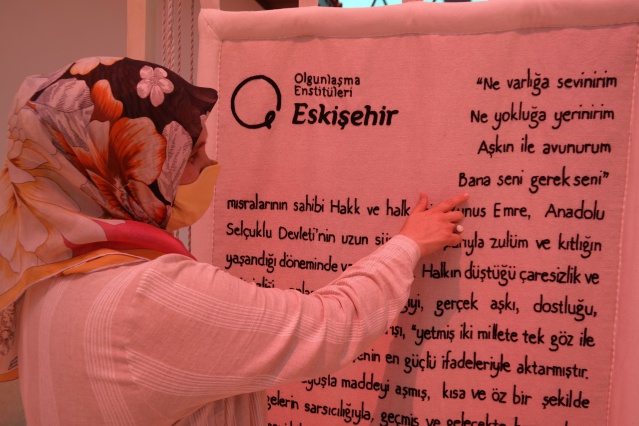 Olgunlaşma
Enstitüleri
Eskişehir
“Ne varlığa sevinirim
Ne yokluğa yerinirim
Aşkın ile avunurum
Bana seni gerek seni”
mısralarının sahibi Hakk ve halk Emre, Anadolu
Selçuklu Devleti'nin uzun zulüm ve kıtlığın
yaşandığı döneminde Halkın düştüğü çaresizlik ve
gerçek aşkı, dostluğu,
“yetmiş iki millete tek göz ile
en güçlü ifadeleriyle aktarmıştır.
maddeyi aşmış, kısa ve öz bir şekilde
sarsıcılığıyla, geçmiş ve gelecekte